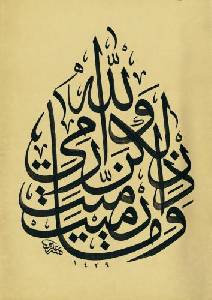 وما رميت إذ رميت ولكن الله رمى
١٤٢٩